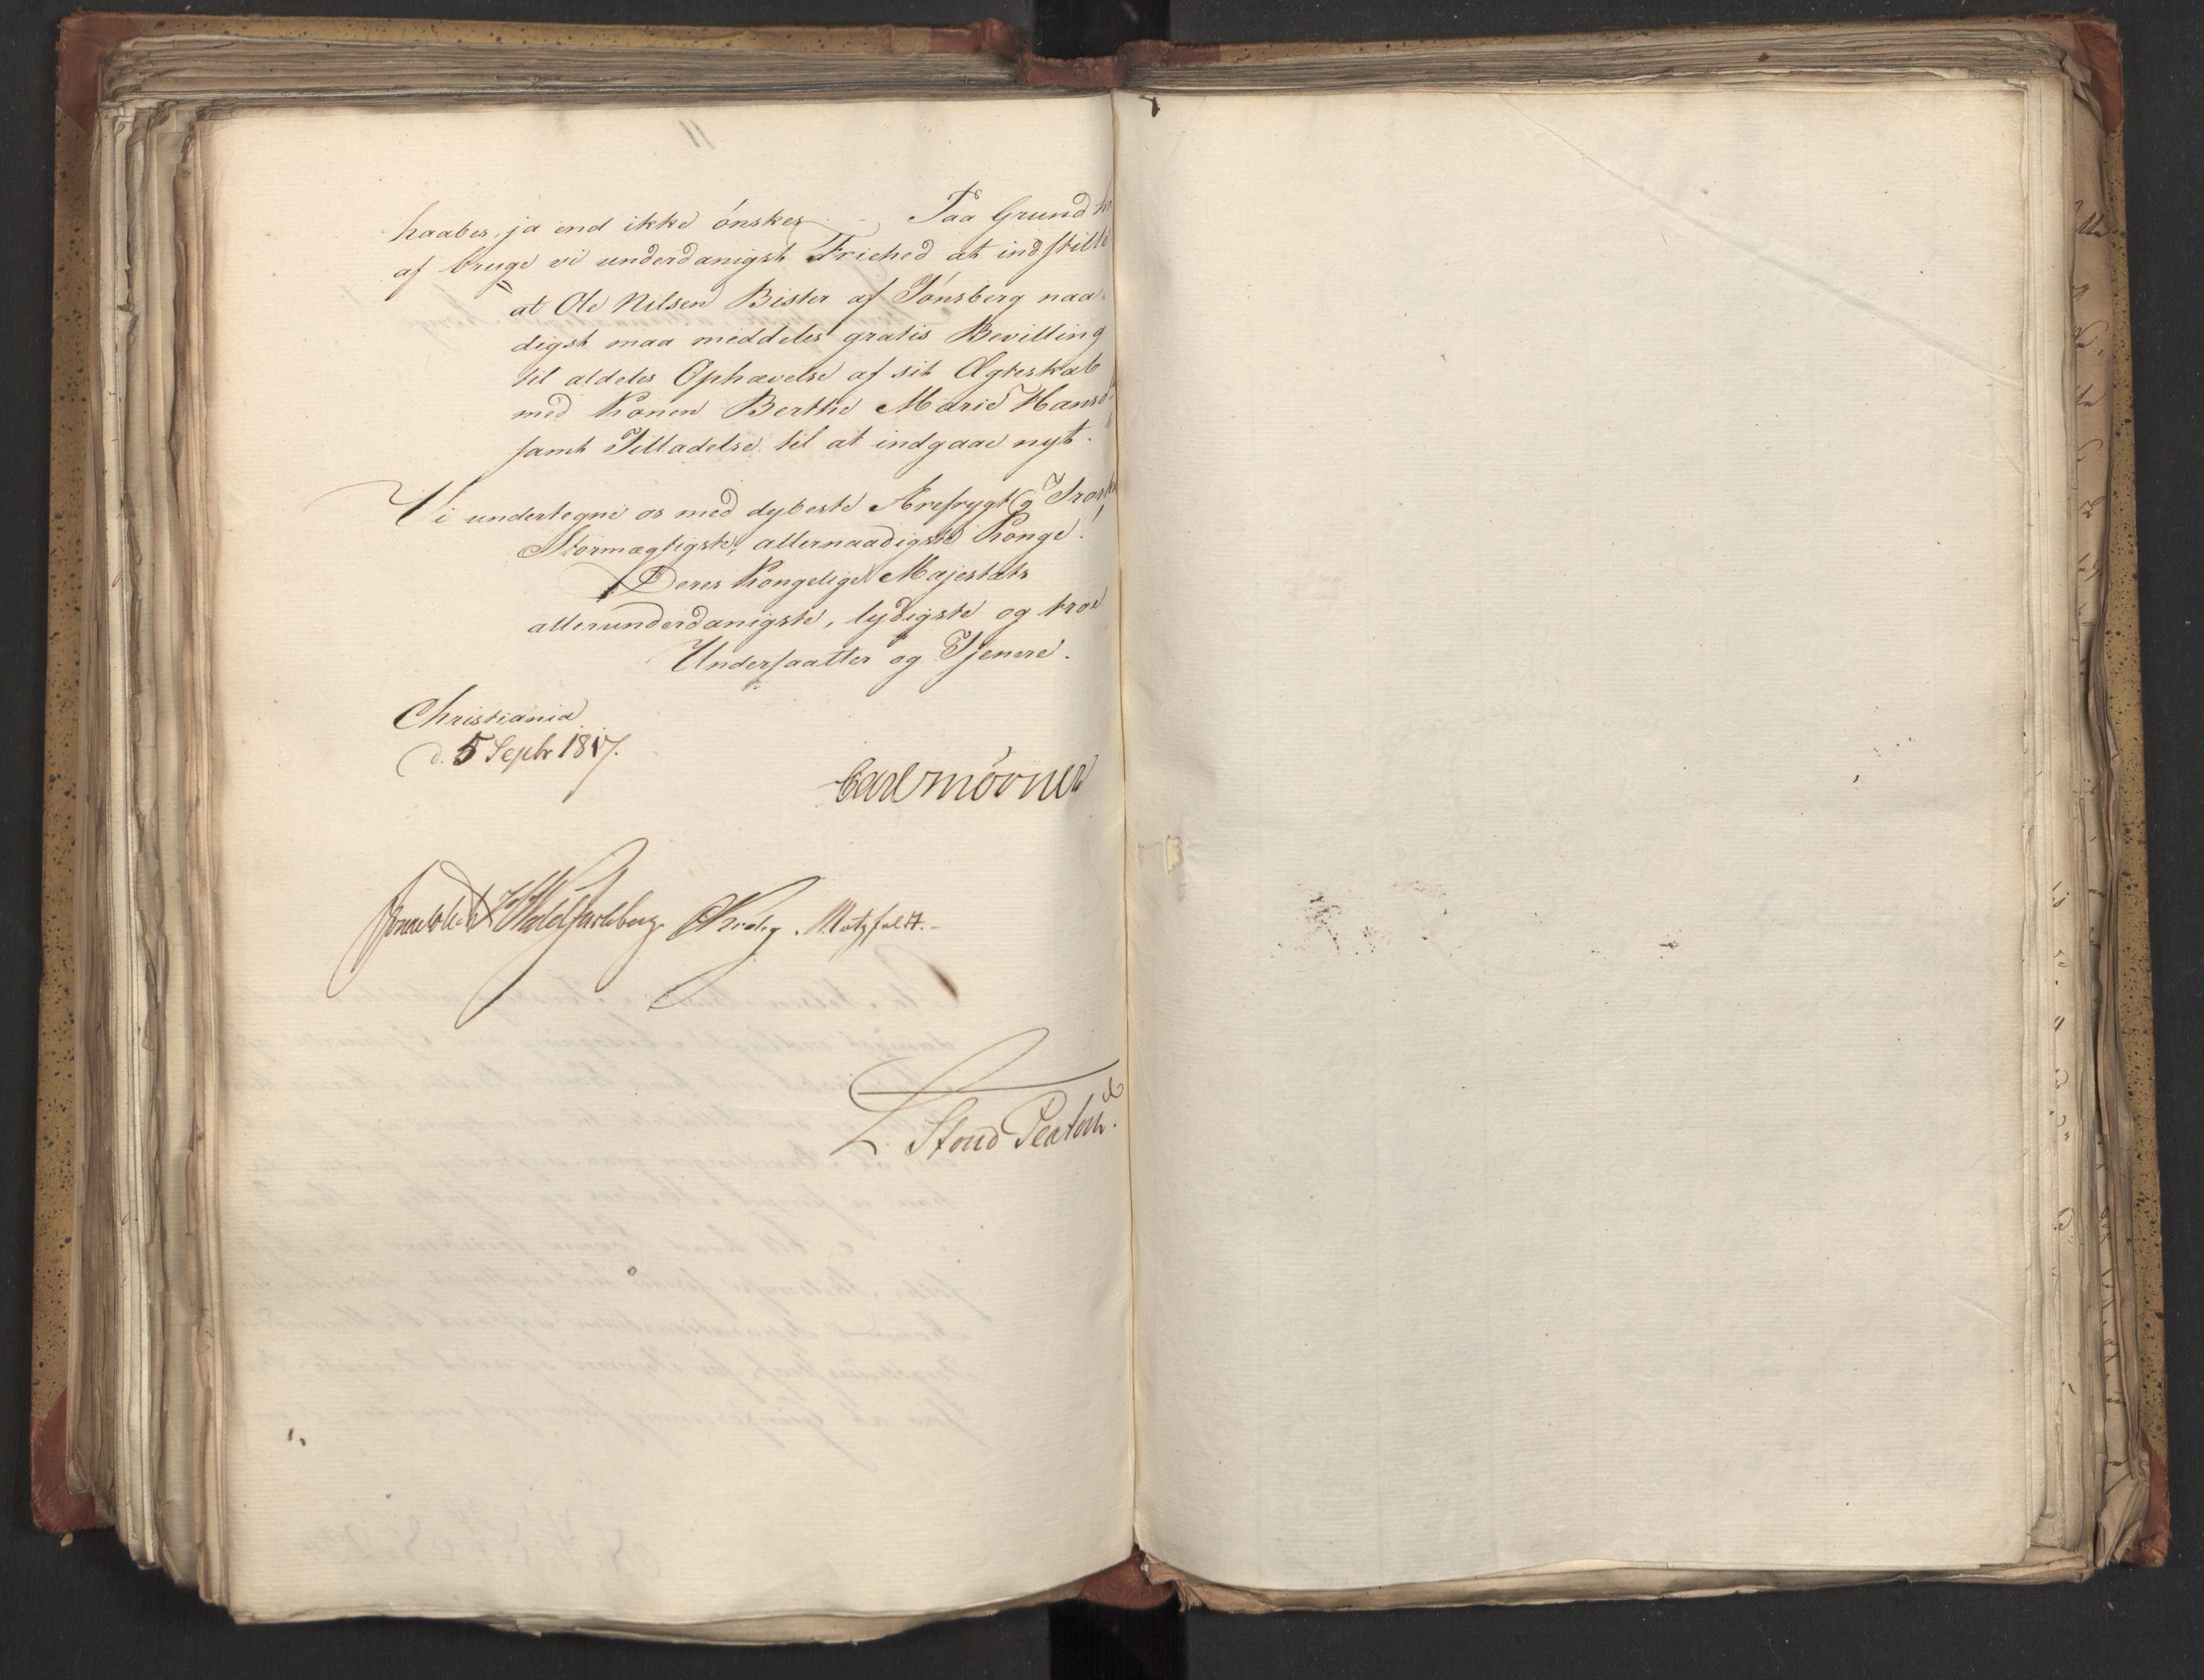 haabes, ja end ikke ønskes. - Paa Grund her
af bruge vi underdanigst Friehed at indstille
at Ole Nilsen Bister af Tønsberg naa-
digst maa meddeles gratis Bevilling
til aldeles Ophævelse af sit Ægteskab
med Konen Berthe Marie Hansd.
samt Tilladelse til at indgaae nyt.
Vi undertegne os med dybeste Ærefrygt og Troskab
Stormægtigste, allernaadigste Konge!
Deres Kongelige Majestæts
allerunderdanigste, lydigste og troe
Undersaatter og Tjenere.
Christiania
d. 5 Septr 1817.
Carl Mörner
Sommerhielm Wedel Jarlsberg CKrohg. Motzfeldt.
L. Stoud Platou